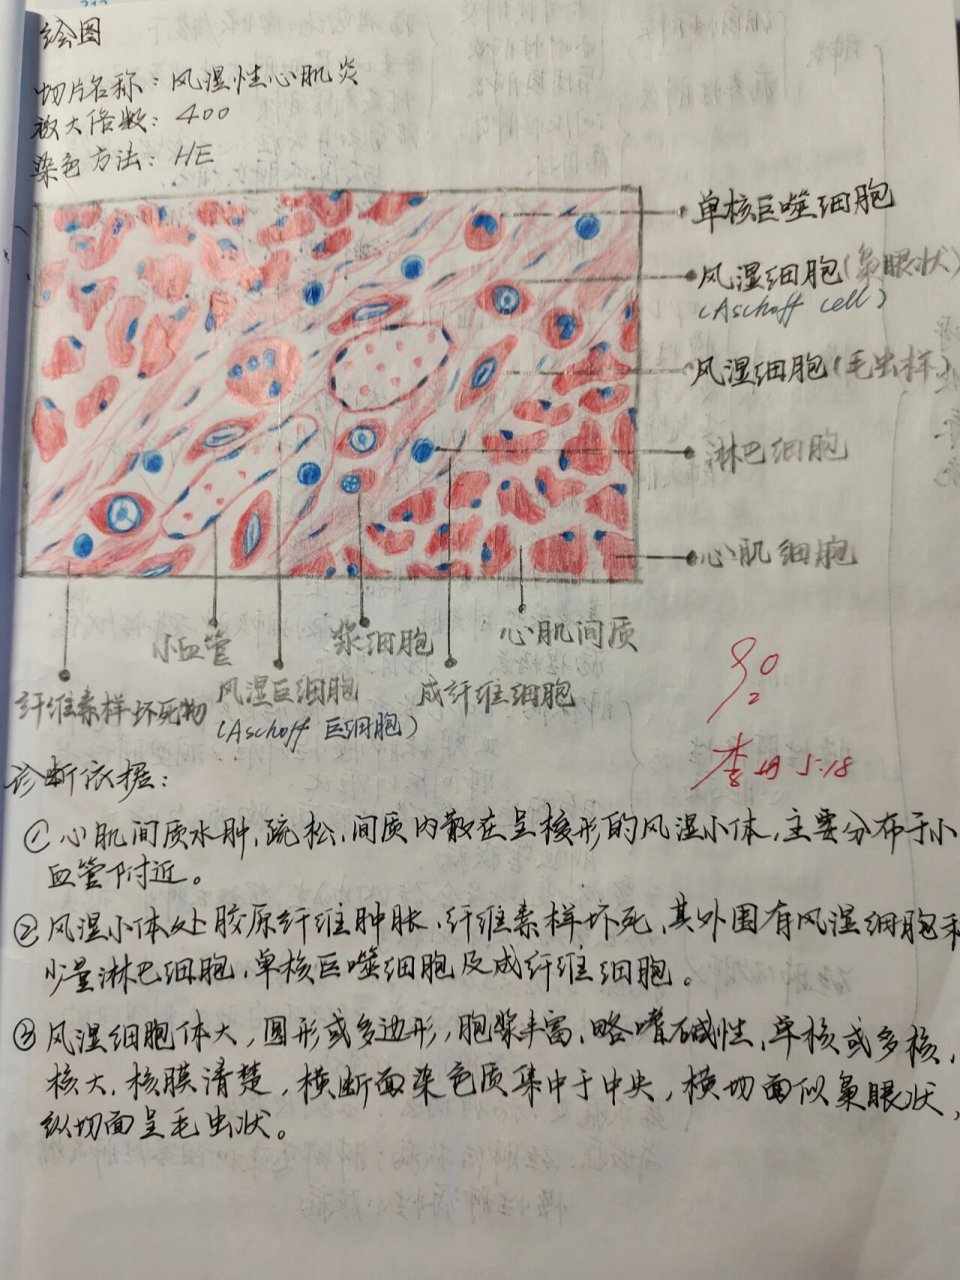 绘图
切片名称：风湿性心肌炎
放大倍数：400
染色方法：HE
单核巨噬细胞
风湿细胞(枭眼状)
(Aschoff cell)
风湿细胞(毛虫样)
淋巴细胞
心肌细胞
小血管
浆细胞
心肌间质
纤维素样坏死物
风湿巨细胞
(Aschoff 巨细胞)
成纤维细胞
90
2
李丹 5.18
诊断依据：
① 心肌间质水肿,疏松,间质内散在呈梭形的风湿小体,主要分布于小
血管附近。
② 风湿小体处胶原纤维肿胀,纤维素样坏死,其外围有风湿细胞和
少量淋巴细胞,单核巨噬细胞及成纤维细胞。
③ 风湿细胞体大,圆形或多边形,胞浆丰富,略嗜碱性,单核或多核,
核大,核膜清楚,横断面染色质集中于中央,横切面似枭眼状,
纵切面呈毛虫状。